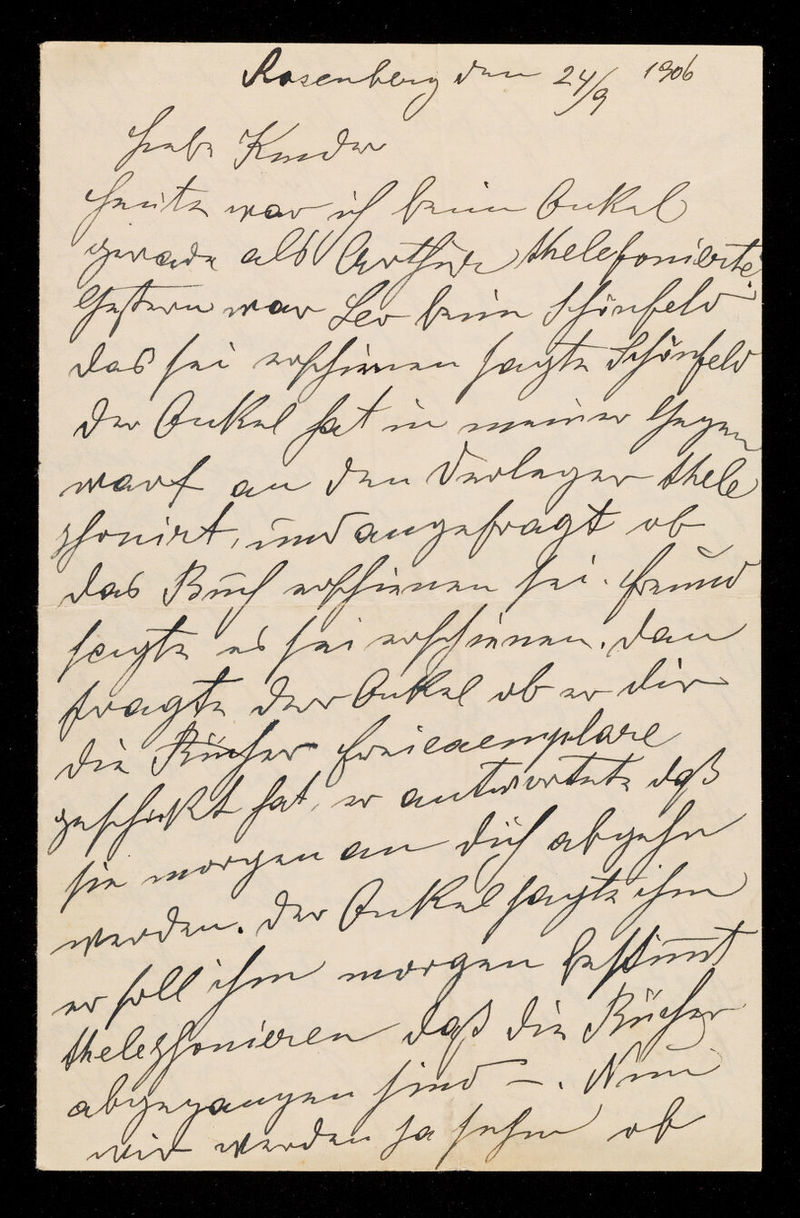 Rosenberg den 24/9 1906
Liebe Kinder
heute war ich beim Onkel
gerade als Arthur thelefonierte.
Gestern war Leo beim Schönfeld
das sei erschienen sagte Schönfeld
der Onkel hat in meiner Gegen
wart an den Verleger thele
phonirt, und angefragt ob
das Buch erschienen sei. Freund
sagte es sei erschienen. dan
fragte der Onkel ob er dir
die Bücher freiexemplare
geschikt hat, er antwortete daß
sie morgen an dich abgehn
werden. Der Onkel sagte ihm
er soll ihm morgen bestimt
thelephonieren daß die Bücher
abgegangen sind —. Nun
wir werden ja sehn ob